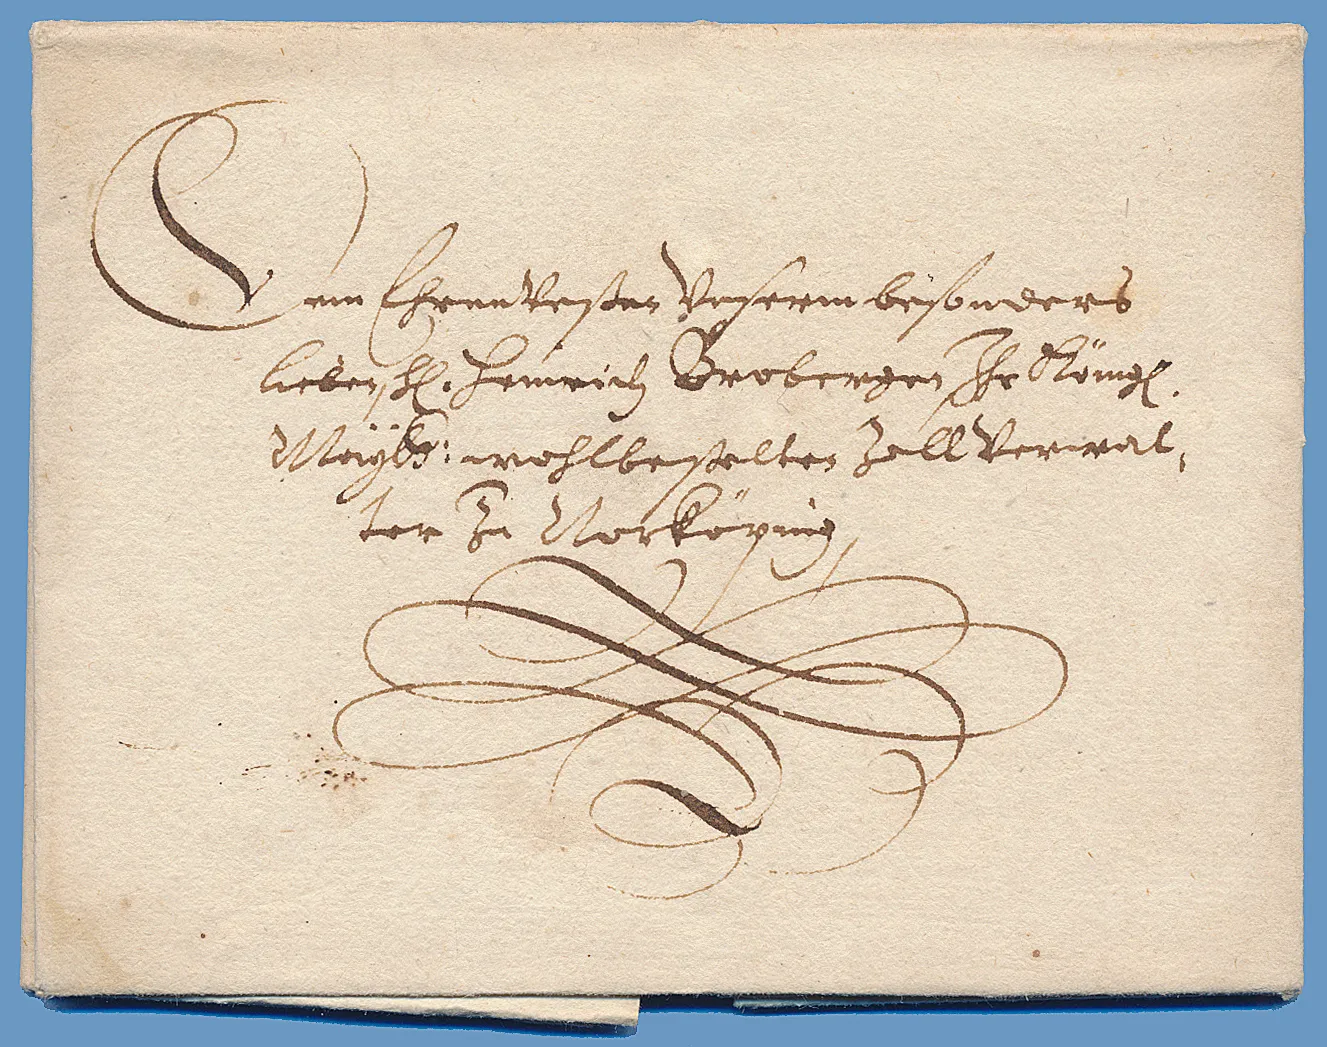 Dem EhrenVesten Vnserm besonders
lieben H. Heinrich Brobergen Ihr Königl.
Maÿtt: wohlbestelten Zoll Verwal,
ter Zu Norköping